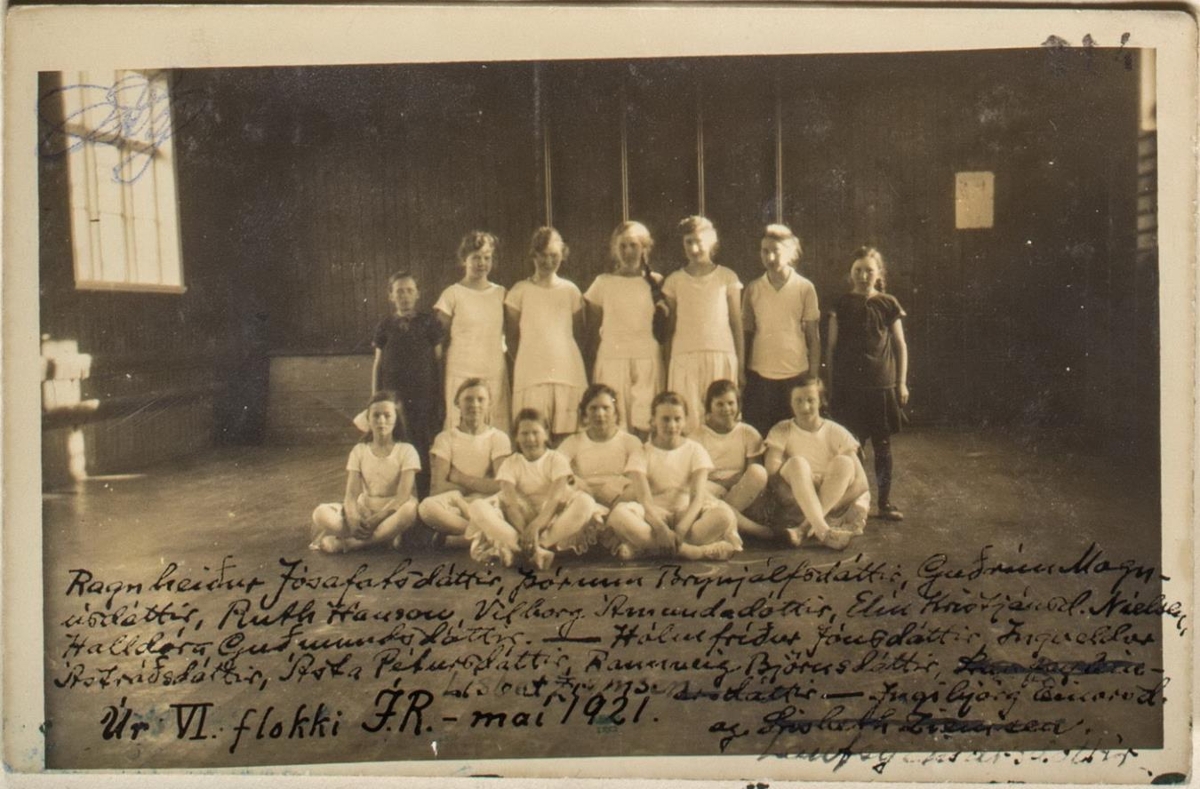 Ragnheiður Jósafatsdóttir, Þórunn Brynjálfsdóttir, Guðrún Magn-
úsdóttir, Ruth Hanson, Vilborg Ámundadóttir, Elín Kristjánsd. Nielsen,
Halldóra Guðmundsdóttir. — Hólmfríður Jónsdóttir, Ingveldur
Ástráðsdóttir, Ásta Pétursdóttir, Rannveig Björnsdóttir,
— Ingibjörg
Úr VI. flokki Í.R. - mai 1921. og